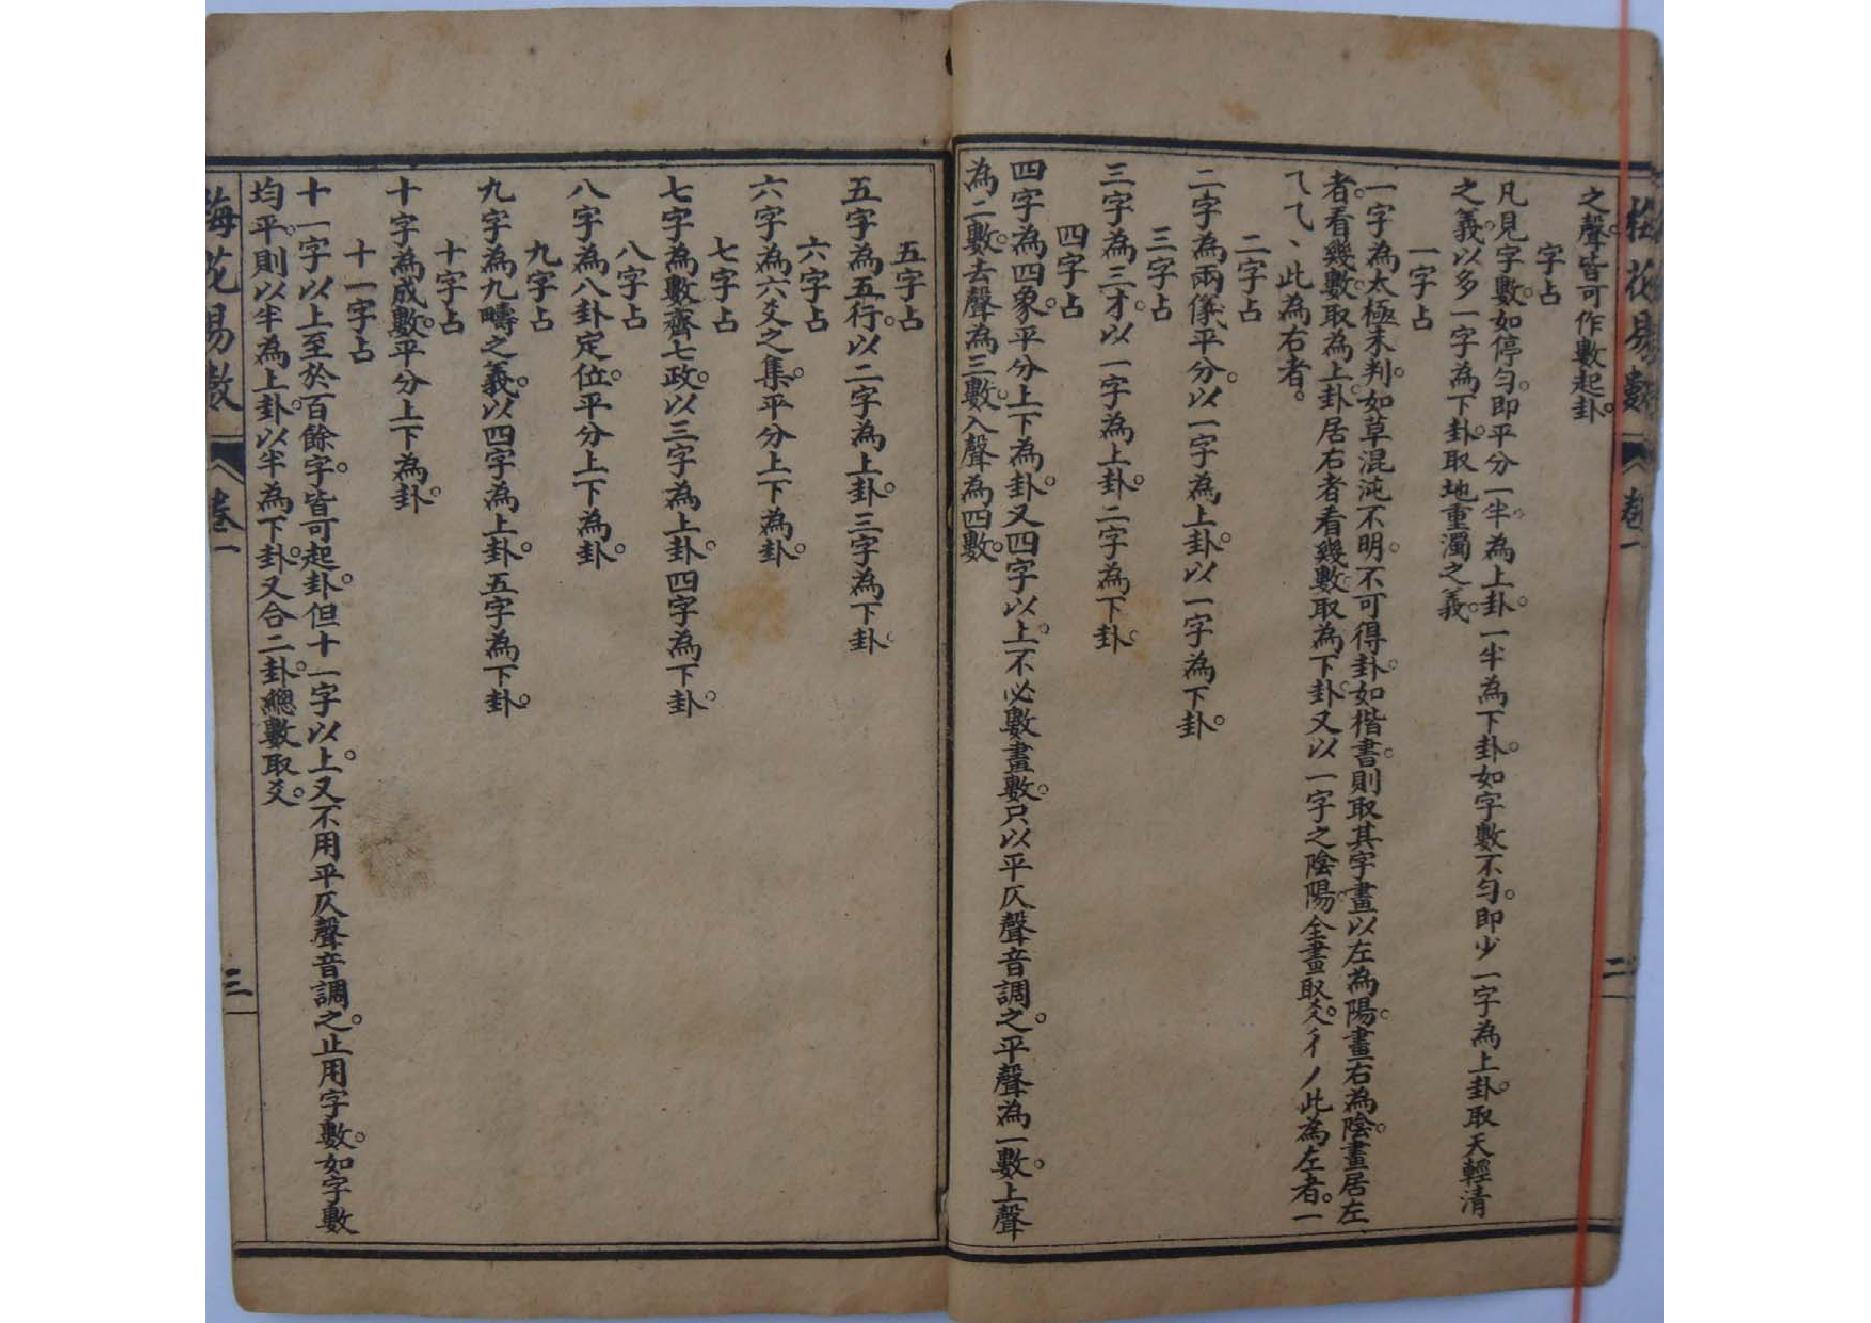 梅花易數
卷一
二
之聲。皆可作數起卦。
字占
凡見字數。如停勻。即平分一半為上卦。一半為下卦。如字數不勻。即少一字為上卦。取天輕清
之義。以多一字為下卦。取地重濁之義。
一字占
一字為太極未判。如草混沌不明。不可得卦。如楷書。則取其字畫。以左為陽畫。右為陰畫。居左
者。看幾數。取為上卦。居右者。看幾數。取為下卦。又以一字之陰陽。全畫取爻。彳丿此為左者。一
乁乁丶此為右者。
二字占
二字為兩儀平分。以一字為上卦。以一字為下卦。
三字占
三字為三才。以一字為上卦。二字為下卦。
四字占
四字為四象。平分上下為卦。又四字以上。不必數畫數。只以平仄聲音調之。平聲為一數。上聲
為二數。去聲為三數。入聲為四數。
五字占
五字為五行。以二字為上卦。三字為下卦。
六字占
六字為六爻之集。平分上下為卦。
七字占
七字為數齊七政。以三字為上卦。四字為下卦。
八字占
八字為八卦定位。平分上下為卦。
九字占
九字為九疇之義。以四字為上卦。五字為下卦。
十字占
十字為成數。平分上下為卦。
十一字占
十一字以上至於百餘字。皆可起卦。但十一字以上。又不用平仄聲音調之。止用字數。如字數
均平。則以半為上卦。以半為下卦。又合二卦。總數取爻。
梅花易數
卷一
三